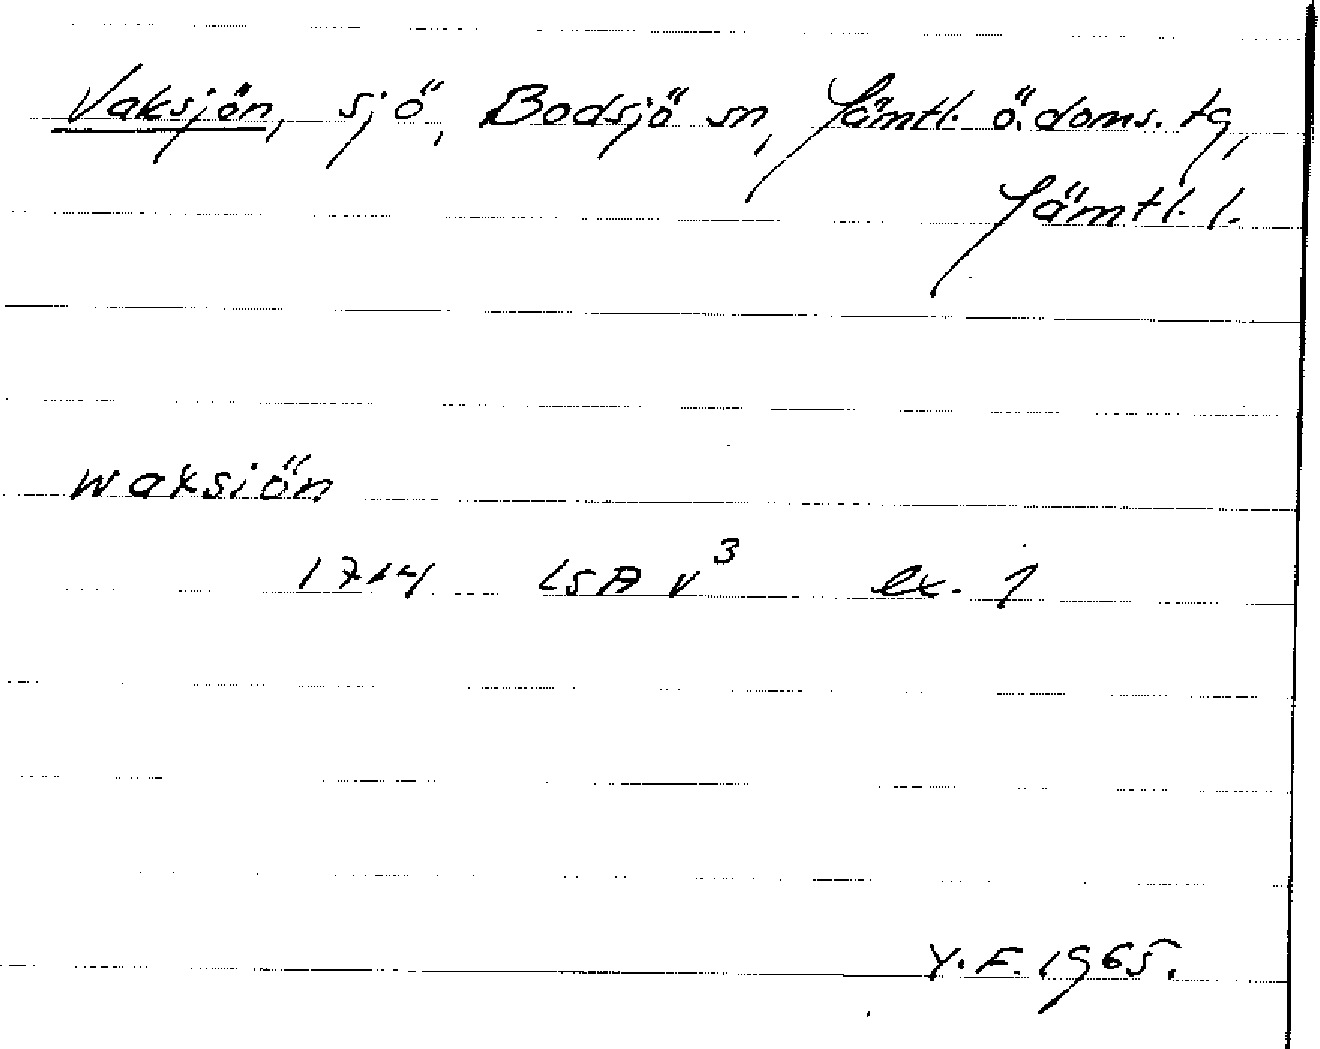 Vaksjön, sjö, Bodsjö sn, Jämtl. ö. doms. tg,
Jämtl. l.
waksiön
1714 LSA V³ ex. 1
Y.F. 1965.